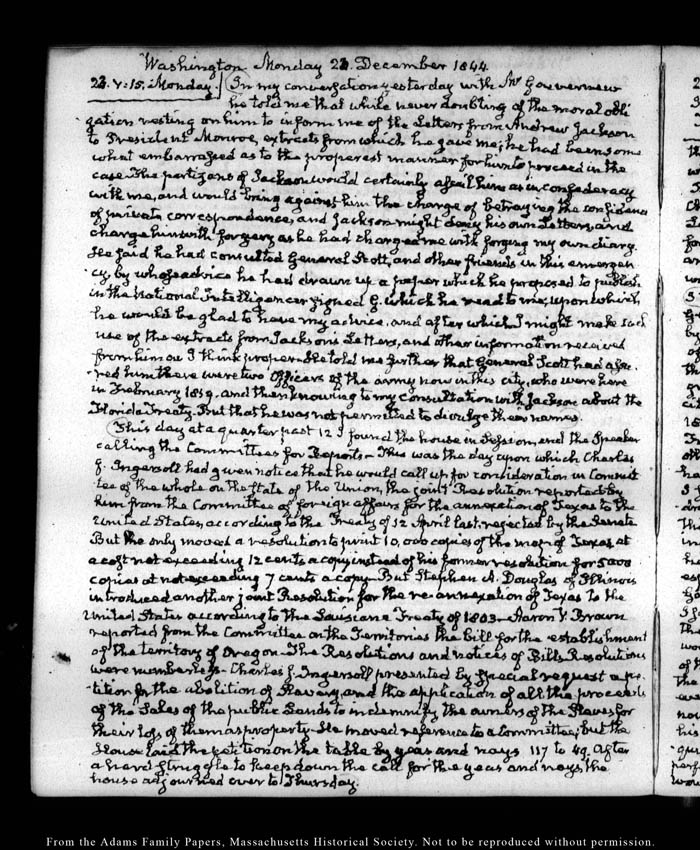 Washington Monday 23. December 1844.
23. V:15. Monday. In my conversation yesterday with Mr Gouverneur
he told me that while never doubting of the moral obli
gation resting on him to inform me of the Letters from Andrew Jackson
to President Monroe, extracts from which he gave me, he had been some
what embarrassed as to the properest manner for him to proceed in the
case. The partizans of Jackson would certainly assail him as in confederacy
with me, and would bring against him the charge of betraying the confidence
of private correspondence, and Jackson might deny his own Letters, and
charge him with forgery as he had charged me with forging my own diary.
He said he had consulted General Scott, and other friends in this emergen
cy by whose advice he had drawn up a paper which he proposed to publish
in the National Intelligencer signed G. which he read to me, upon which
he would be glad to have my advice, and after which I might make such
use of the extracts from Jackson's Letters, and other information received
from him as I think proper. He told me further that General Scott had assu
red him there were two Officers of the army now in this city, who were here
in February 1819. and then knowing to my consultation with Jackson about the
Florida Treaty. But that he was not permitted to divulge their names.
This day at a quarter past 12 I found the house in Session, and the Speaker
calling the Committees for Reports. This was the day upon which Charles
J. Ingersoll had given notice that he would call up for consideration in Commit
tee of the whole on the state of the Union, the joint Resolution reported by
him from the Committee of foreign affairs for the annexation of Texas to the
United States, according to the Treaty of 12 April last, rejected by the Senate
But he only moved a resolution to print 10,000 copies of the map of Texas, at
a cost not exceeding 12 cents a copy instead of his former resolution for 5000
copies at not exceeding 7 cents a copy. But Stephen A. Douglas of Illinois
introduced another joint Resolution for the re-annexation of Texas to the
United States according to the Louisiana Treaty of 1803. Aaron V. Brown
reported from the Committee on the Territories the bill for the establishment
of the territory of Oregon. The Resolutions and notices of Bills Resolutions
were numberless. Charles J. Ingersoll presented by special request a pe
tition for the abolition of Slavery, and the application of all the proceeds
of the Sales of the public Lands to indemnify the owners of the Slaves for
their loss of them as property. He moved reference to a Committee, but the
House laid the petition on the table by yeas and nays 117 to 49. After
a hard struggle to keep down the call for the yeas and nays, the
house adjourned over to Thursday.
From the Adams Family Papers, Massachusetts Historical Society. Not to be reproduced without permission.